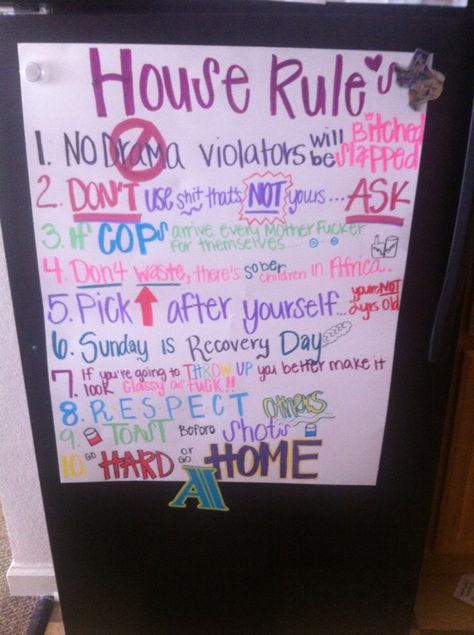 House Rules
1. No Drama violators will be Bitched slapped
2. DON'T use shit that's NOT yours... ASK
3. If COPs arrive every MotherFucker
for themselves
4. Don't waste, there's sober children in Africa..
5. Pick after yourself... you're NOT 2yrs old
6. Sunday is Recovery Day
7. If you're going to THROW UP you better make it
look classy as FUCK!!
8. RESPECT others
9. TOAST Before shots
10. GO HARD or GO HOME
A